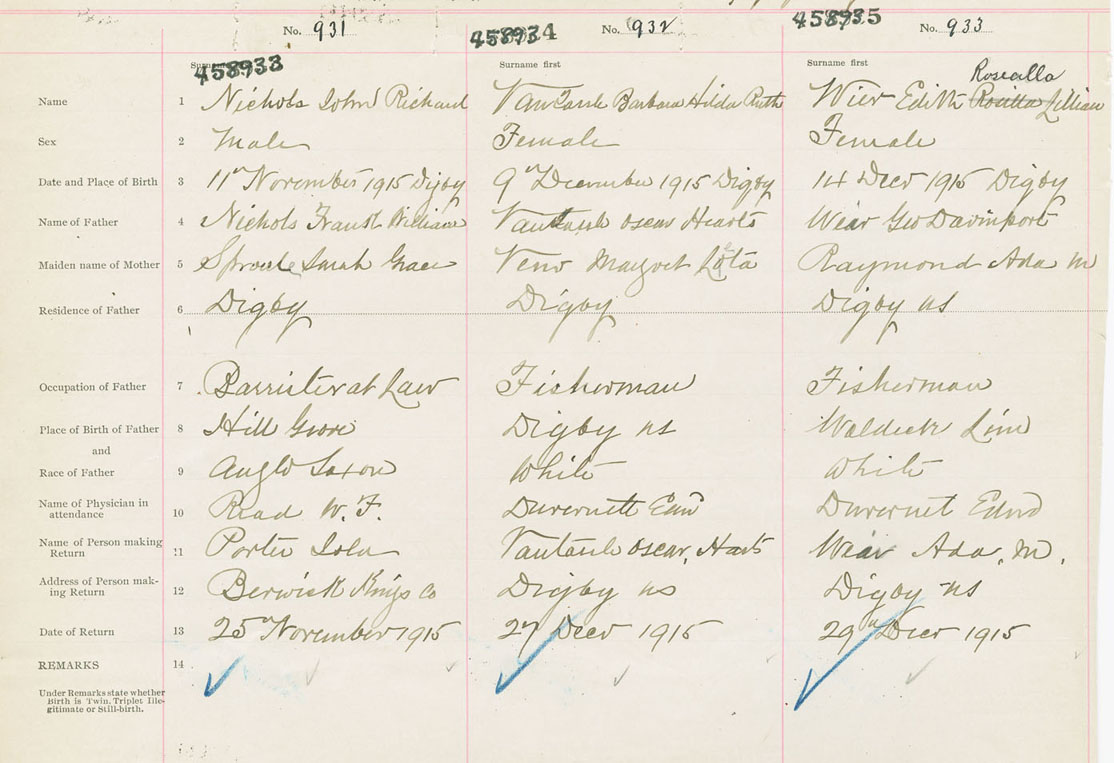 No. 931 No. 932 No. 933
458933 458934 458935
Surname first Surname first Surname first
Rosealla
Name 1 Nichols John Richard Vantassle Barbara Hilda Ruth Wier Edith Rosilla Lillian
Sex 2 Male Female Female
Date and Place of Birth 3 11th November 1915 Digby 9th December 1915 Digby 14 Decr 1915 Digby
Name of Father 4 Nichols William Vantassle Oscar Wear Geo Davinport
Maiden name of Mother 5 Sproule Sarah Grace Margret Raymond Ada M
Residence of Father 6 Digby Digby Digby NS
Occupation of Father 7 Barrister at Law Fisherman Fisherman
Place of Birth of Father 8 Hill Grove Digby NS Waldeck Line
and
Race of Father 9 Anglo Saxon White White
Name of Physician in
attendance 10 Read W. F. Duvernett Duvernet Edwd
Name of Person making
Return 11 Porter Lola Vantassle Oscar, Wear Ada, M.
Address of Person mak-
ing Return 12 Berwick Kings Co Digby NS Digby NS
Date of Return 13 25th November 1915 27 Decr 1915 29th Decr 1915
REMARKS 14
Under Remarks state whether
Birth is Twin. Triplet Ille-
gitimate or Still-birth.